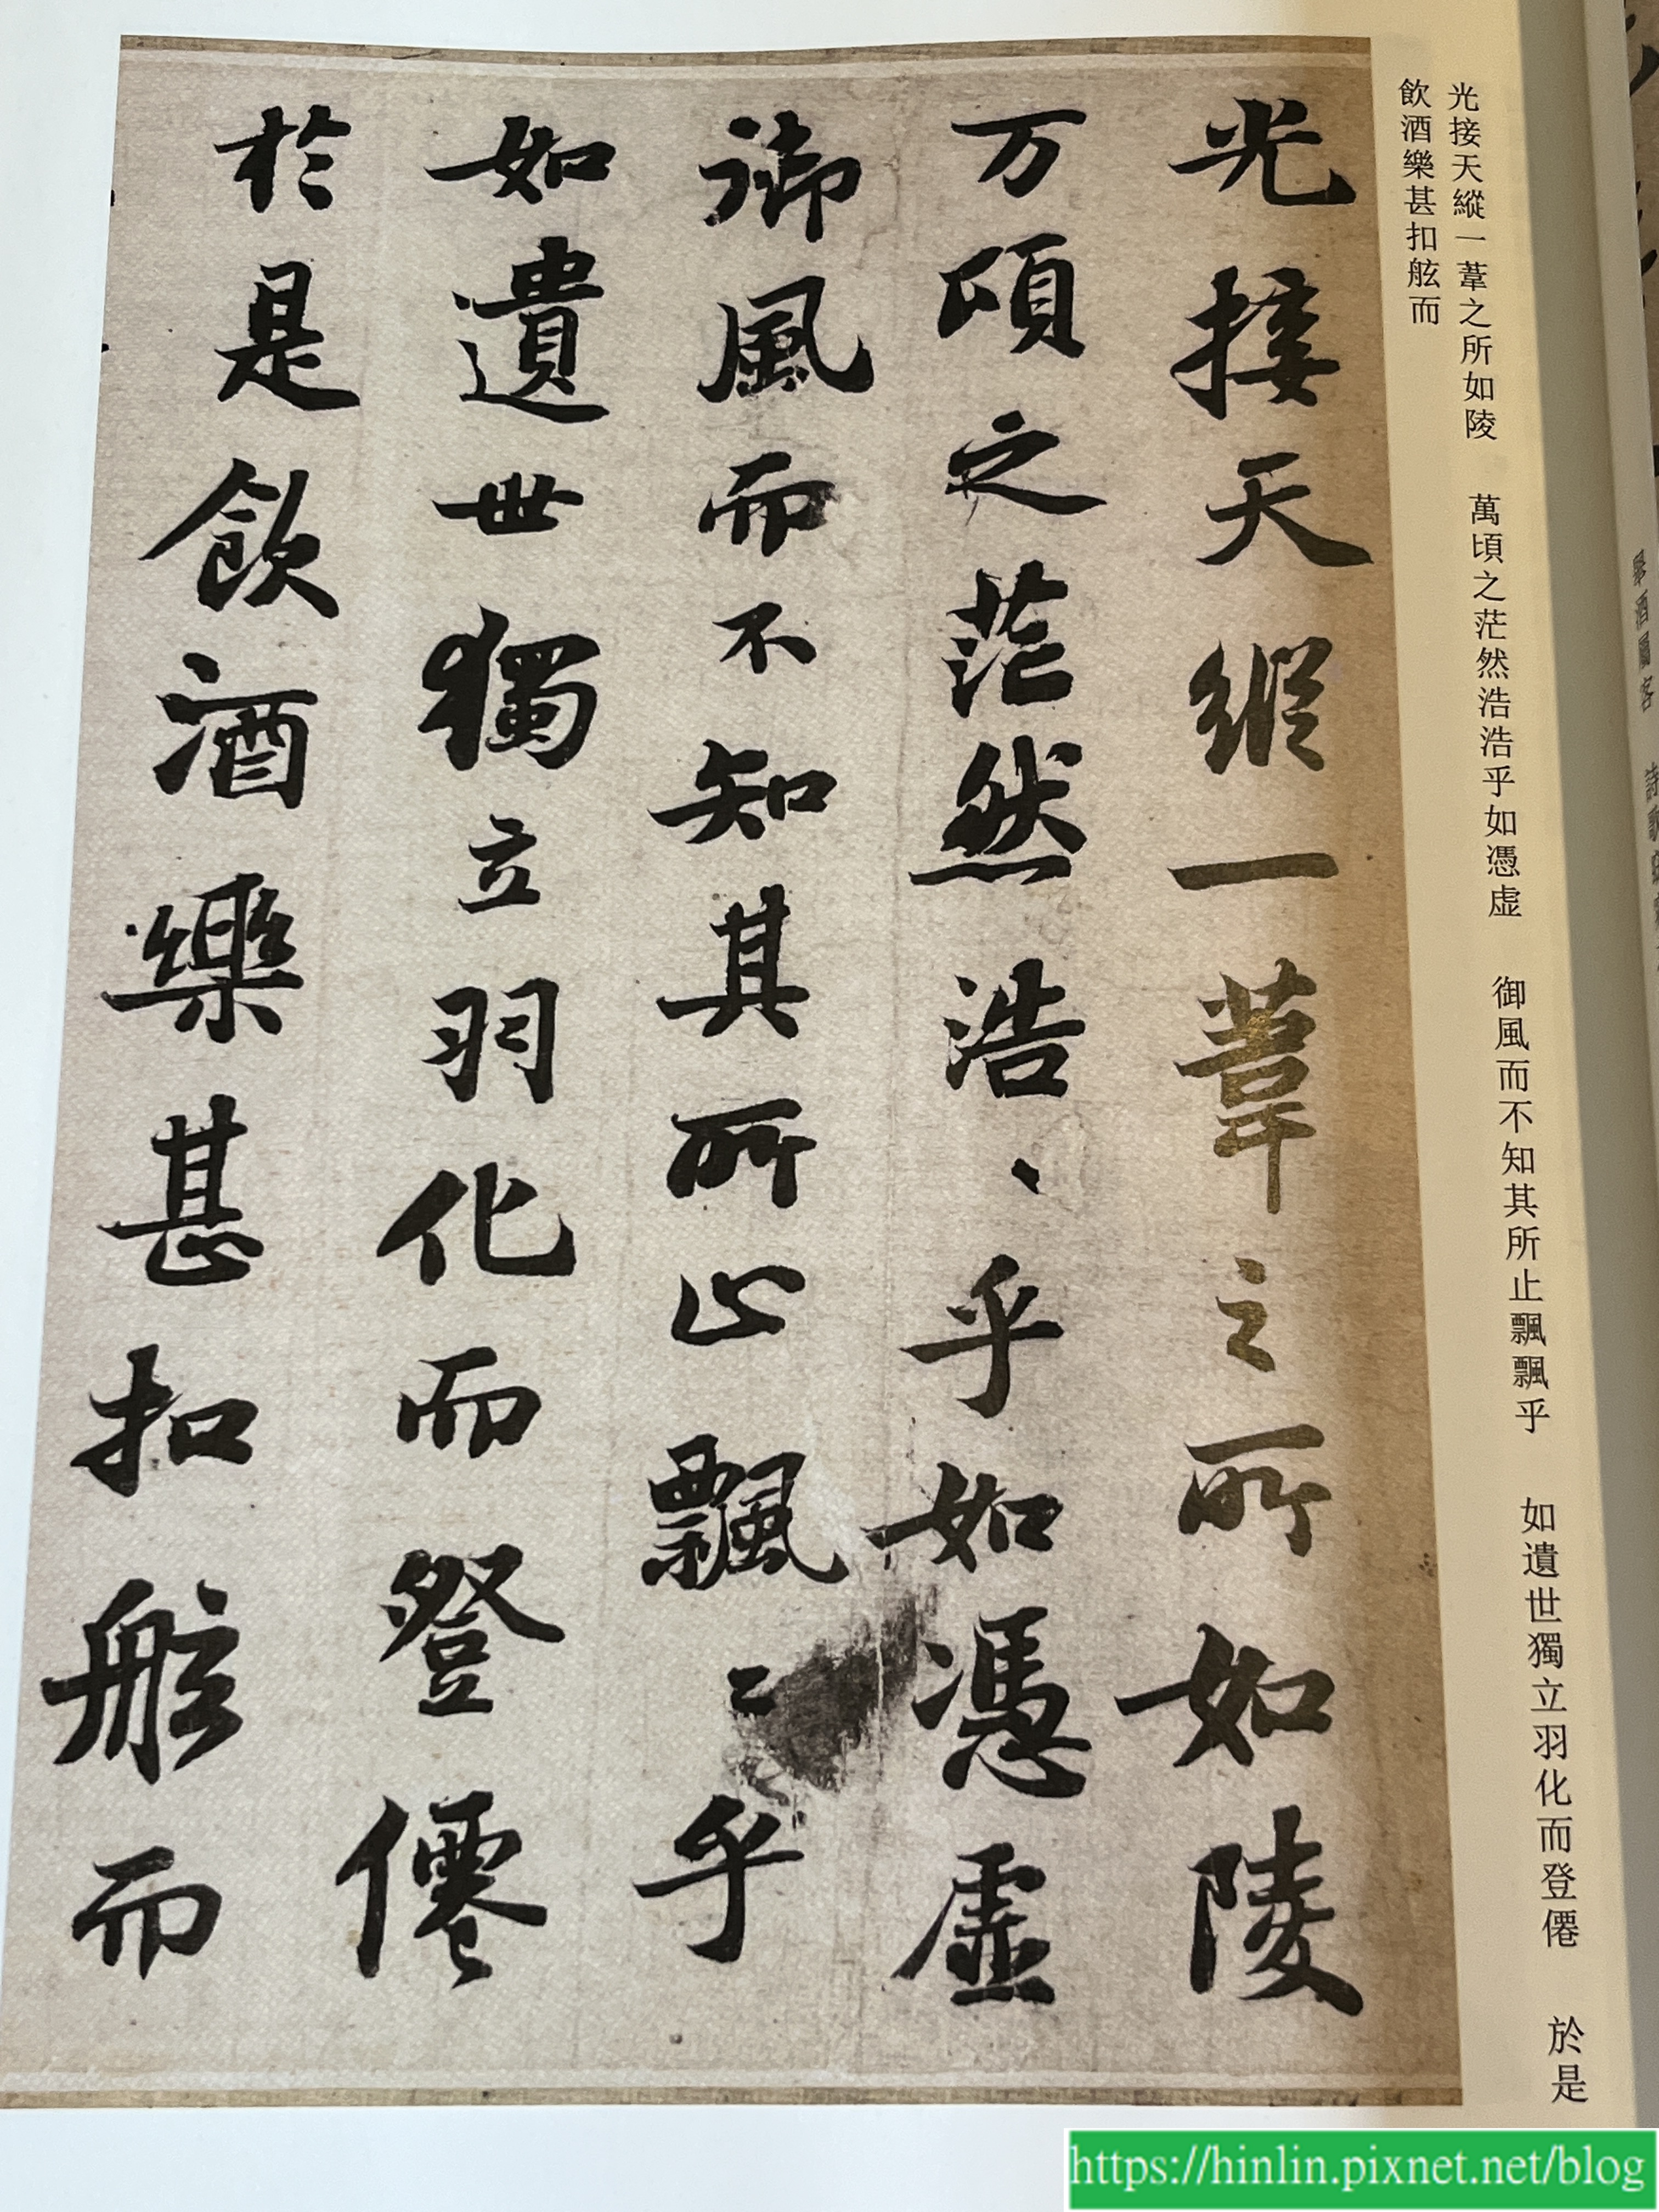 光接天縱一葦之所如陵　萬頃之茫然浩浩乎如憑虛　御風而不知其所止飄飄乎　如遺世獨立羽化而登僊　於是
飲酒樂甚扣舷而
光接天縱一葦之所如陵
万頃之茫然浩、乎如憑虛
御風而不知其所止飄〻乎
如遺世獨立羽化而登僊
於是飲酒樂甚扣舷而
舉酒屬客　詩歌
https://hinlin.pixnet.net/blog